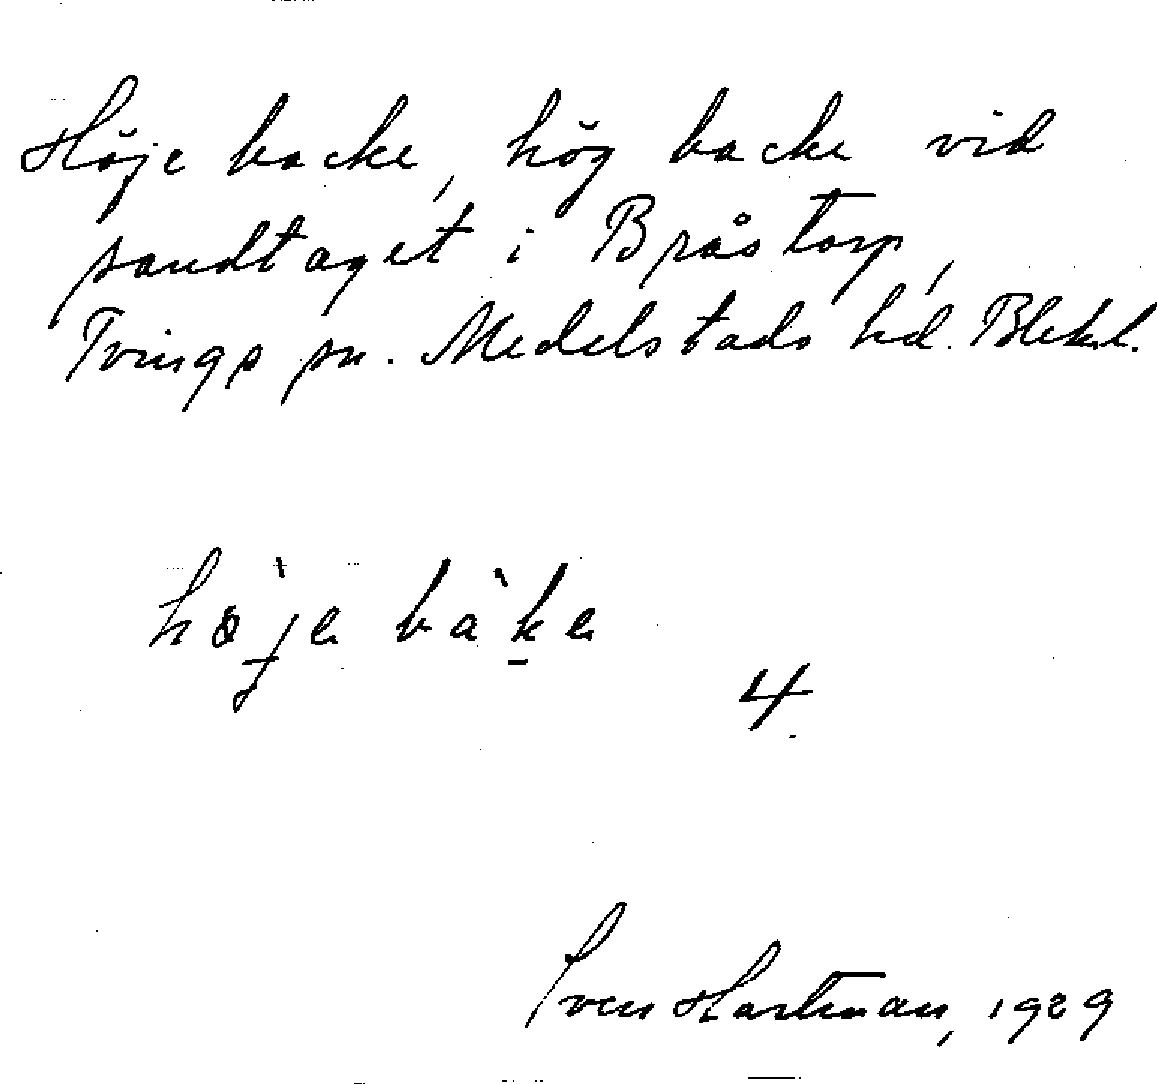 Höje backe, hög backe vid
sandtaget i Bråstorp,
Tvings sn. Medelstads hd. Blekl.
høje bake
4
Sven Hartman, 1929